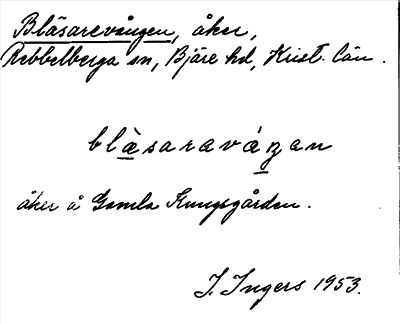 Bläsarevången, åker,
Rebbelberga sn, Bjäre hd, Krist. län.
blàsaraváŋan
åker å Gamla Kungsgården.
I. Ingers 1953.